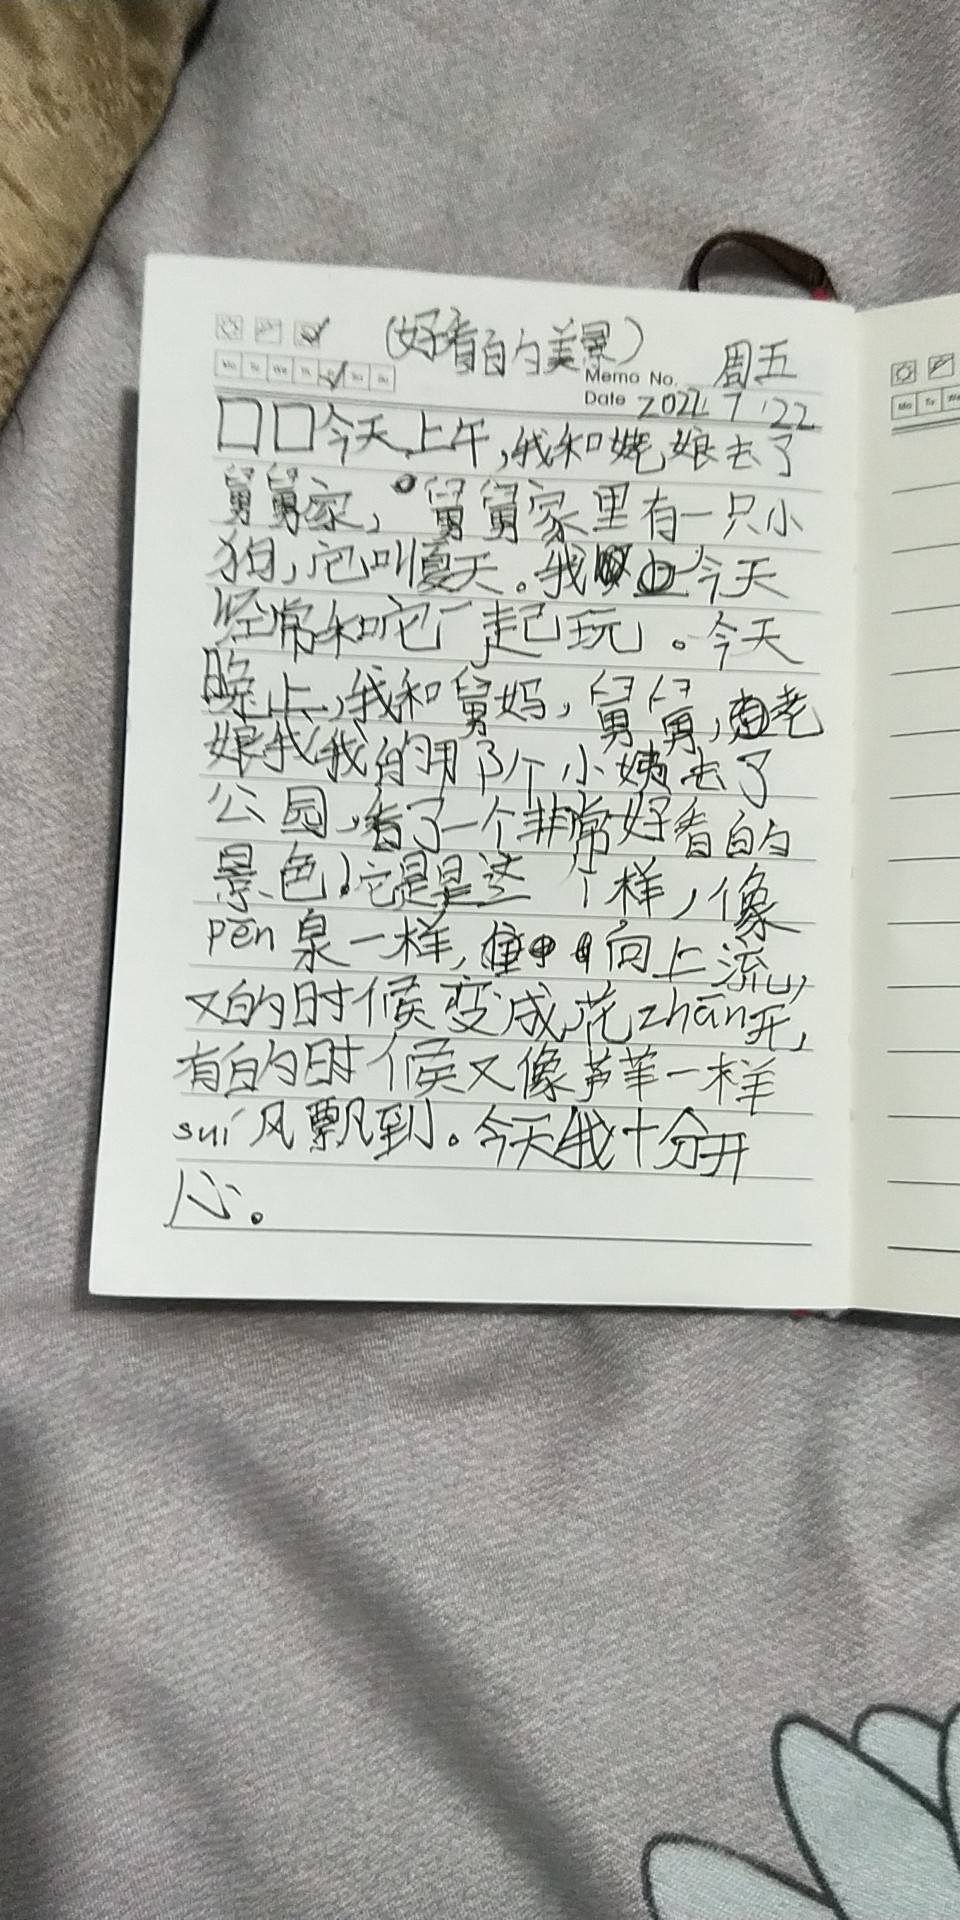 （好看的美景）
周五
Memo No.
Date 2022 7 22
口口今天上午,我和姥娘去了
舅舅家，舅舅家里有一只小
狗,它叫夏天。我今天
经常和它一起玩。今天
晚上,我和舅妈,舅舅,老
娘我的那个小姨去了
公园,看了一个非常好看的
景色!它是是这个样,像
pēn泉一样,向上流,
又的时候变成花zhǎn开,
有的时候又像芦苇一样
suí风飘到。今天我十分开
心。